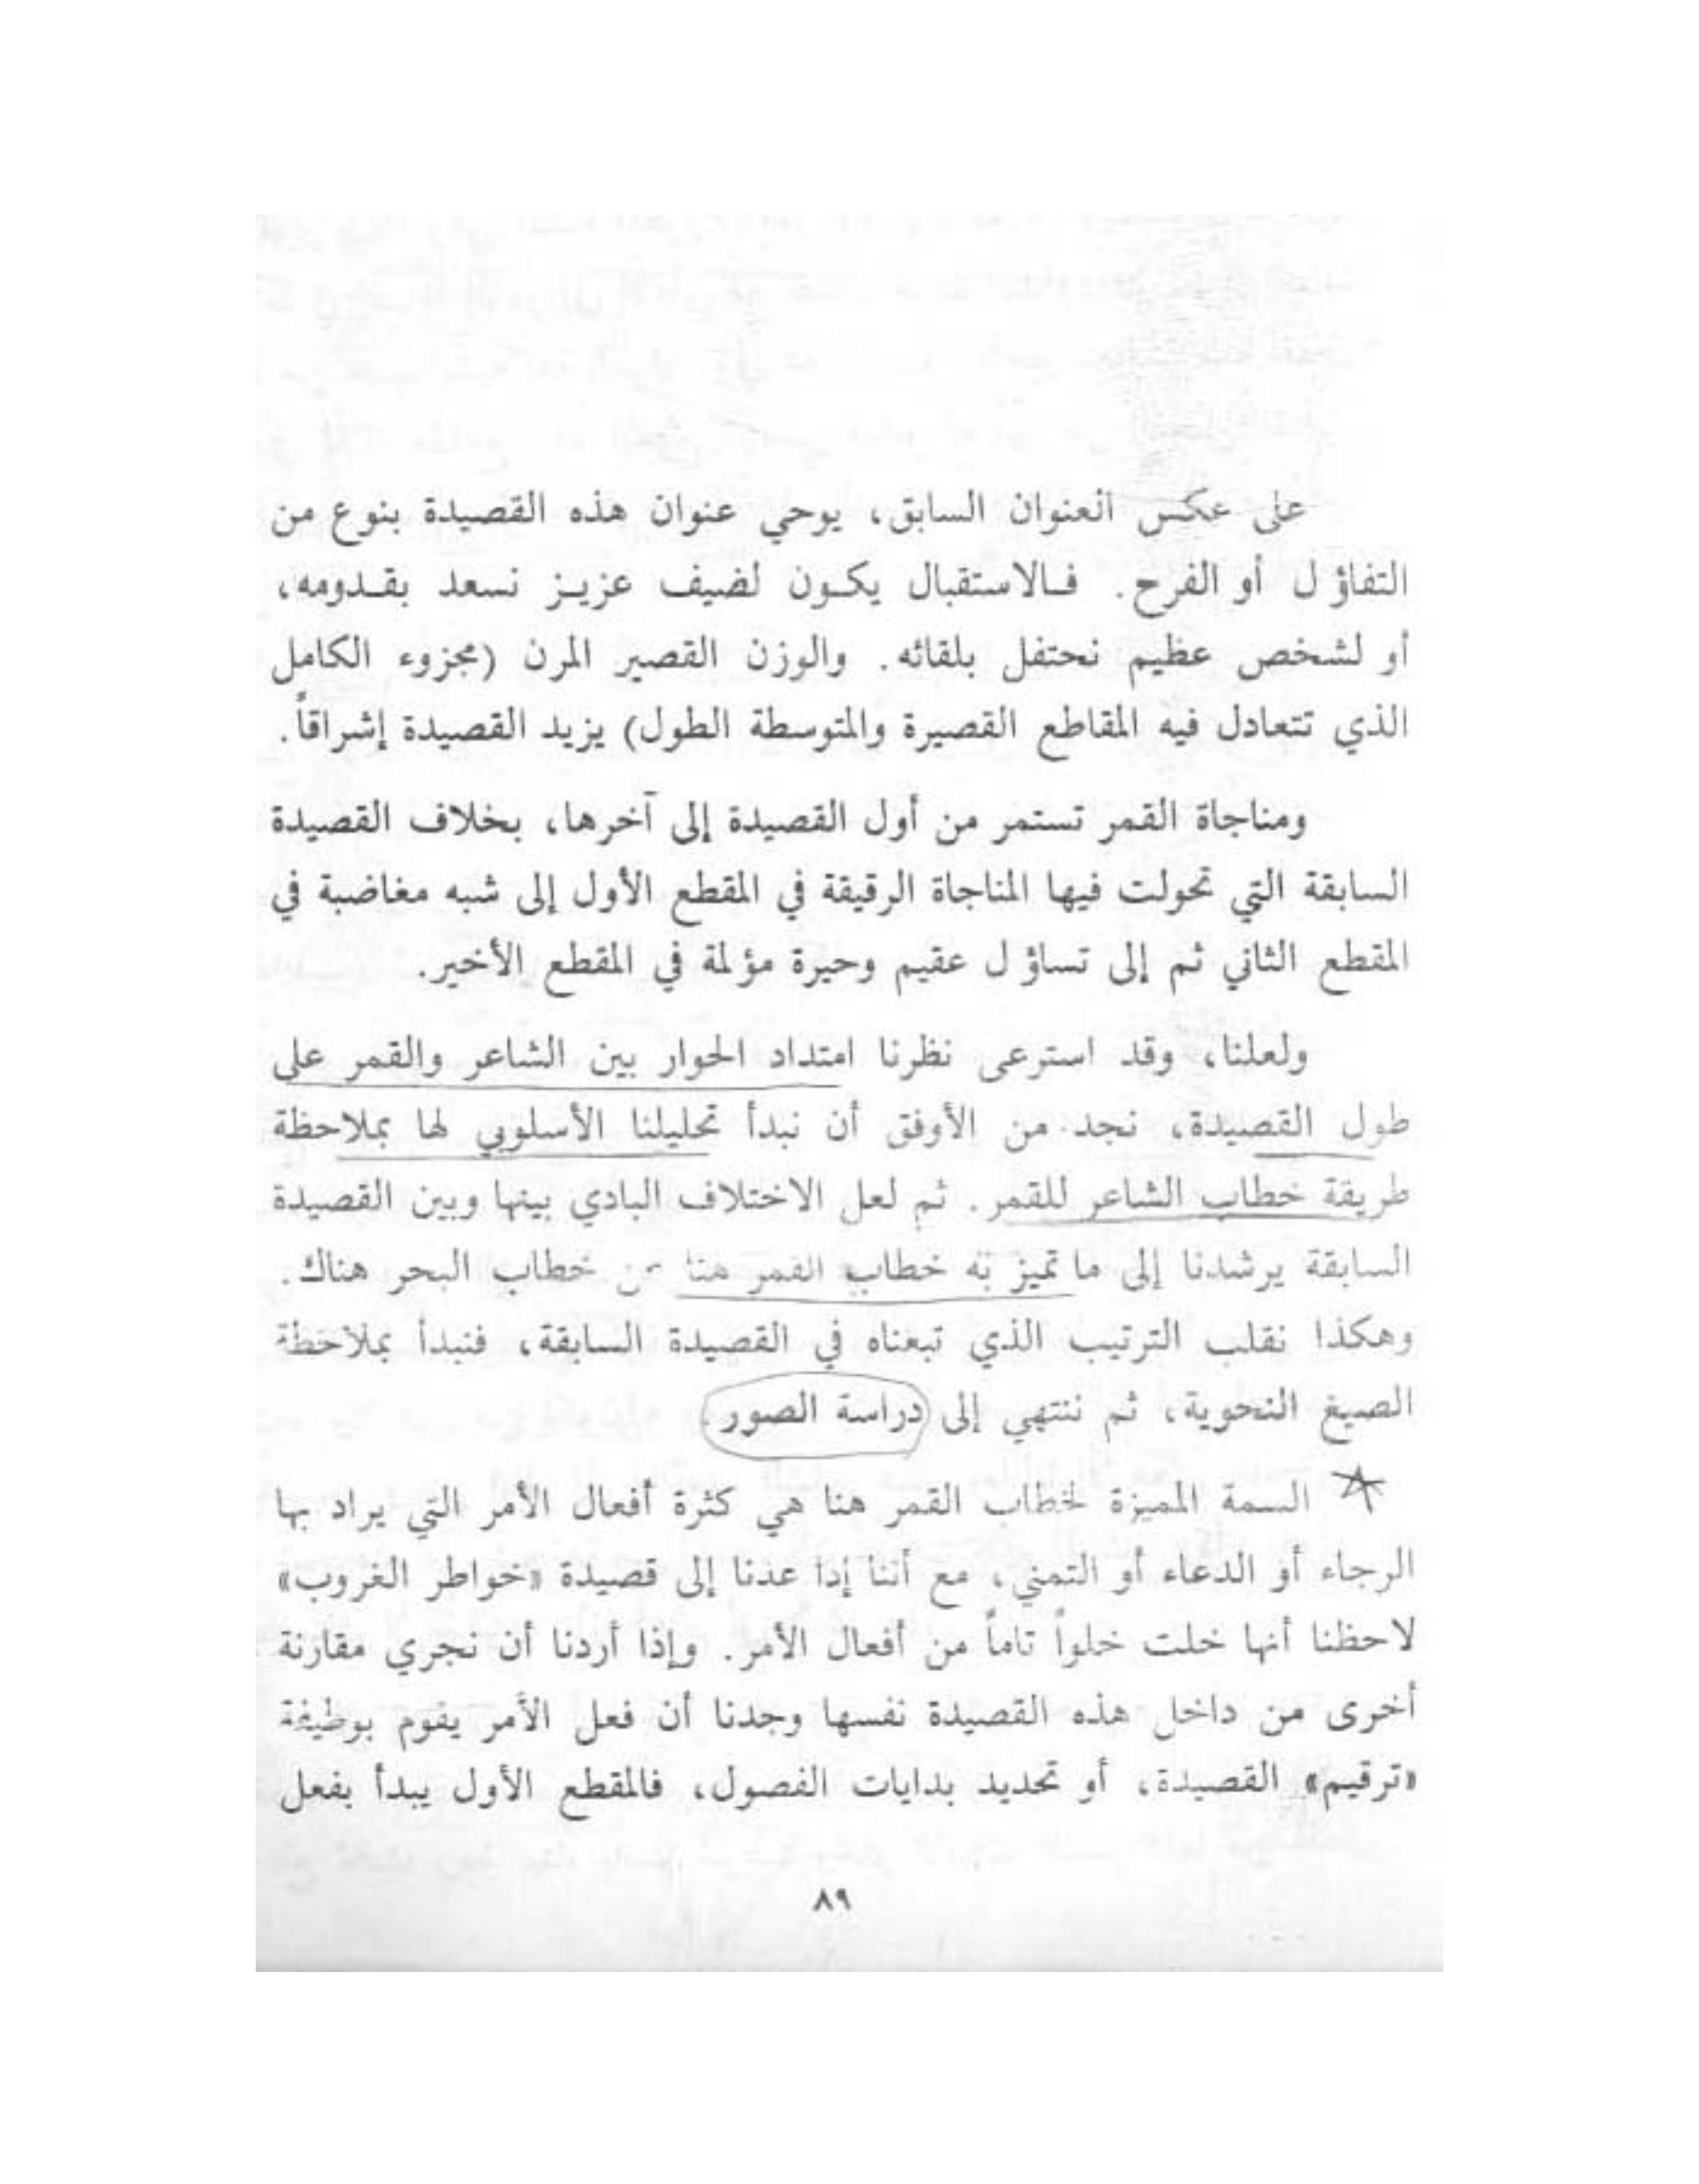 على عكس العنوان السابق، يوحي عنوان هذه القصيدة بنوع من
التفاؤل أو الفرح. فالاستقبال يكون لضيف عزيز نسعد بقدومه،
أو لشخص عظيم نحتفل بلقائه. والوزن القصير المرن (مجزوء الكامل
الذي تتعادل فيه المقاطع القصيرة والمتوسطة الطول) يزيد القصيدة إشراقاً.
ومناجاة القمر تستمر من أول القصيدة إلى آخرها، بخلاف القصيدة
السابقة التي تحولت فيها المناجاة الرقيقة في المقطع الأول إلى شبه مغاضبة في
المقطع الثاني ثم إلى تساؤل عقيم وحيرة مؤلمة في المقطع الأخير.
ولعلنا، وقد استرعى نظرنا امتداد الحوار بين الشاعر والقمر على
طول القصيدة، نجد من الأوفق أن نبدأ تحليلنا الأسلوبي لها بملاحظة
طريقة خطاب الشاعر للقمر. ثم لعل الاختلاف البادي بينها وبين القصيدة
السابقة يرشدنا إلى ما تميز به خطاب القمر هنا عن خطاب البحر هناك.
وهكذا نقلب الترتيب الذي تبعناه في القصيدة السابقة، فنبدأ بملاحظة
الصيغ النحوية، ثم ننتهي إلى دراسة الصور.
السمة المميزة لخطاب القمر هنا هي كثرة أفعال الأمر التي يراد بها
الرجاء أو الدعاء أو التمني، مع أننا إذا عدنا إلى قصيدة «خواطر الغروب»
لاحظنا أنها خلت خلواً تاماً من أفعال الأمر. وإذا أردنا أن نجري مقارنة
أخرى من داخل هذه القصيدة نفسها وجدنا أن فعل الأمر يقوم بوظيفة
«ترقيم» القصيدة، أو تحديد بدايات الفصول، فالمقطع الأول يبدأ بفعل
٨٩